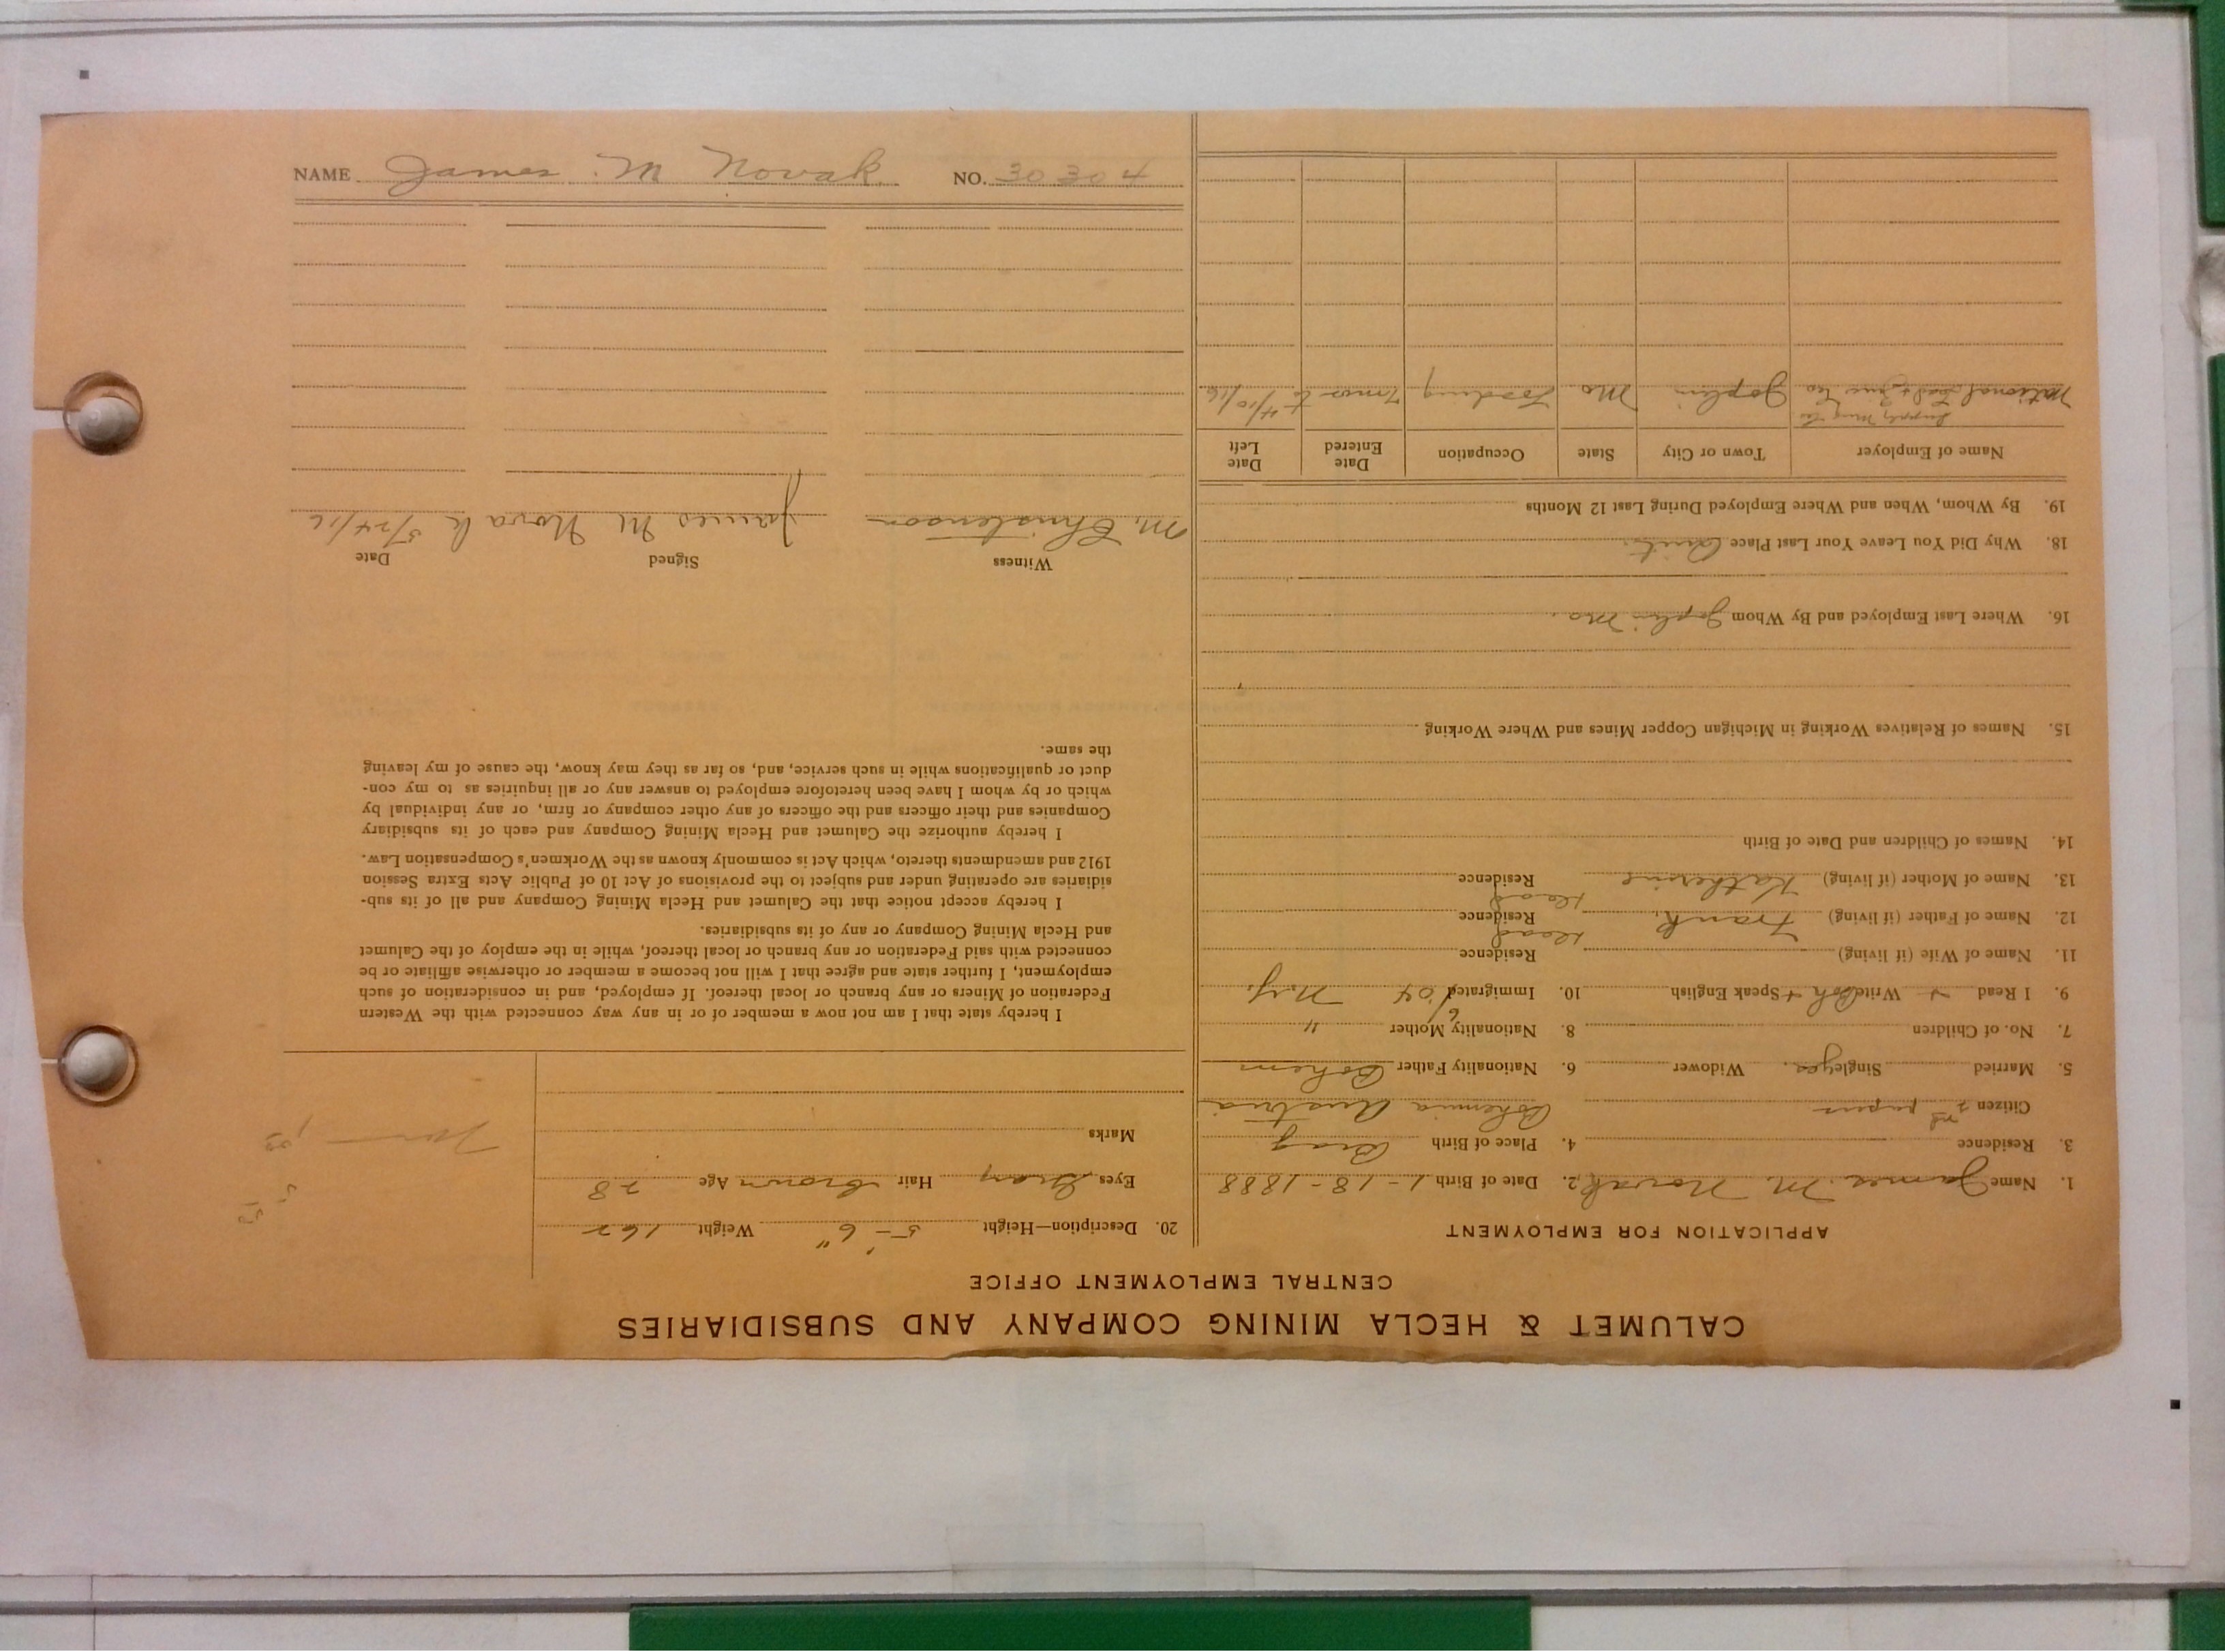 CALUMET & HECLA MINING COMPANY AND SUBSIDIARIES
CENTRAL EMPLOYMENT OFFICE
APPLICATION FOR EMPLOYMENT
1. Name James M. Novak 2. Date of Birth 1-18-1888
3. Residence 4. Place of Birth Prag
Citizen 2nd papers Bohemia Austria
5. Married Single yes. Widower 6. Nationality Father Bohem
7. No. of Children 8. Nationality Mother "
9. I Read + Write Boh + Speak English 10. Immigrated 6/04 N.Y.
11. Name of Wife (if living) Residence
12. Name of Father (if living) Frank Residence dead
13. Name of Mother (if living) Katherine Residence dead
14. Names of Children and Date of Birth
15. Names of Relatives Working in Michigan Copper Mines and Where Working
16. Where Last Employed and By Whom Joplin Mo.
18. Why Did You Leave Your Last Place Quit.
19. By Whom, When and Where Employed During Last 12 Months
Name of Employer Town or City State Occupation Date Entered Date Left
National Lead & Zinc Co Joplin Mo. 7 mos to 4/10/16
20. Description—Height 5'-6" Weight 162
Eyes Gray Hair Brown Age 28
Marks
I hereby state that I am not now a member of or in any way connected with the Western
Federation of Miners or any branch or local thereof. If employed, and in consideration of such
employment, I further state and agree that I will not become a member or otherwise affiliate or be
connected with said Federation or any branch or local thereof, while in the employ of the Calumet
and Hecla Mining Company or any of its subsidiaries.
I hereby accept notice that the Calumet and Hecla Mining Company and all of its sub-
sidiaries are operating under and subject to the provisions of Act 10 of Public Acts Extra Session
1912 and amendments thereto, which Act is commonly known as the Workmen's Compensation Law.
I hereby authorize the Calumet and Hecla Mining Company and each of its subsidiary
Companies and their officers and the officers of any other company or firm, or any individual by
which or by whom I have been heretofore employed to answer any or all inquiries as to my con-
duct or qualifications while in such service, and, so far as they may know, the cause of my leaving
the same.
Witness Signed Date
M. Christenson James M Novak 5/24/16
NAME James M Novak NO. 30304